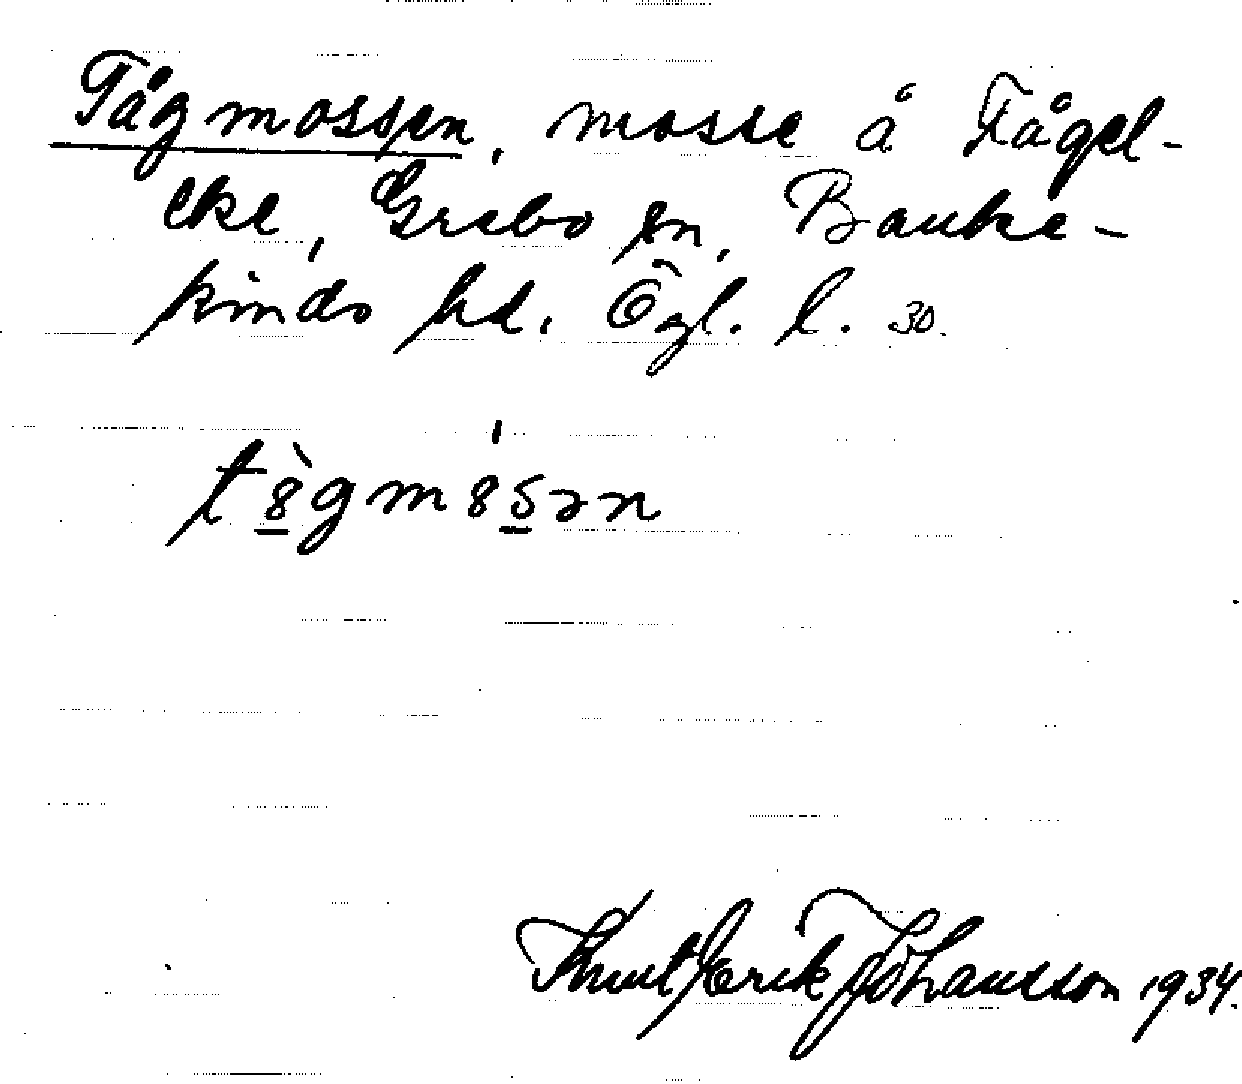 Tågmossen, mosse å Fågel-
eke, Grebo sn, Banke-
kinds hd. Ögl. l. 30.
t8̲̀gm8s̲ən
Knut Erik Johansson 1934.